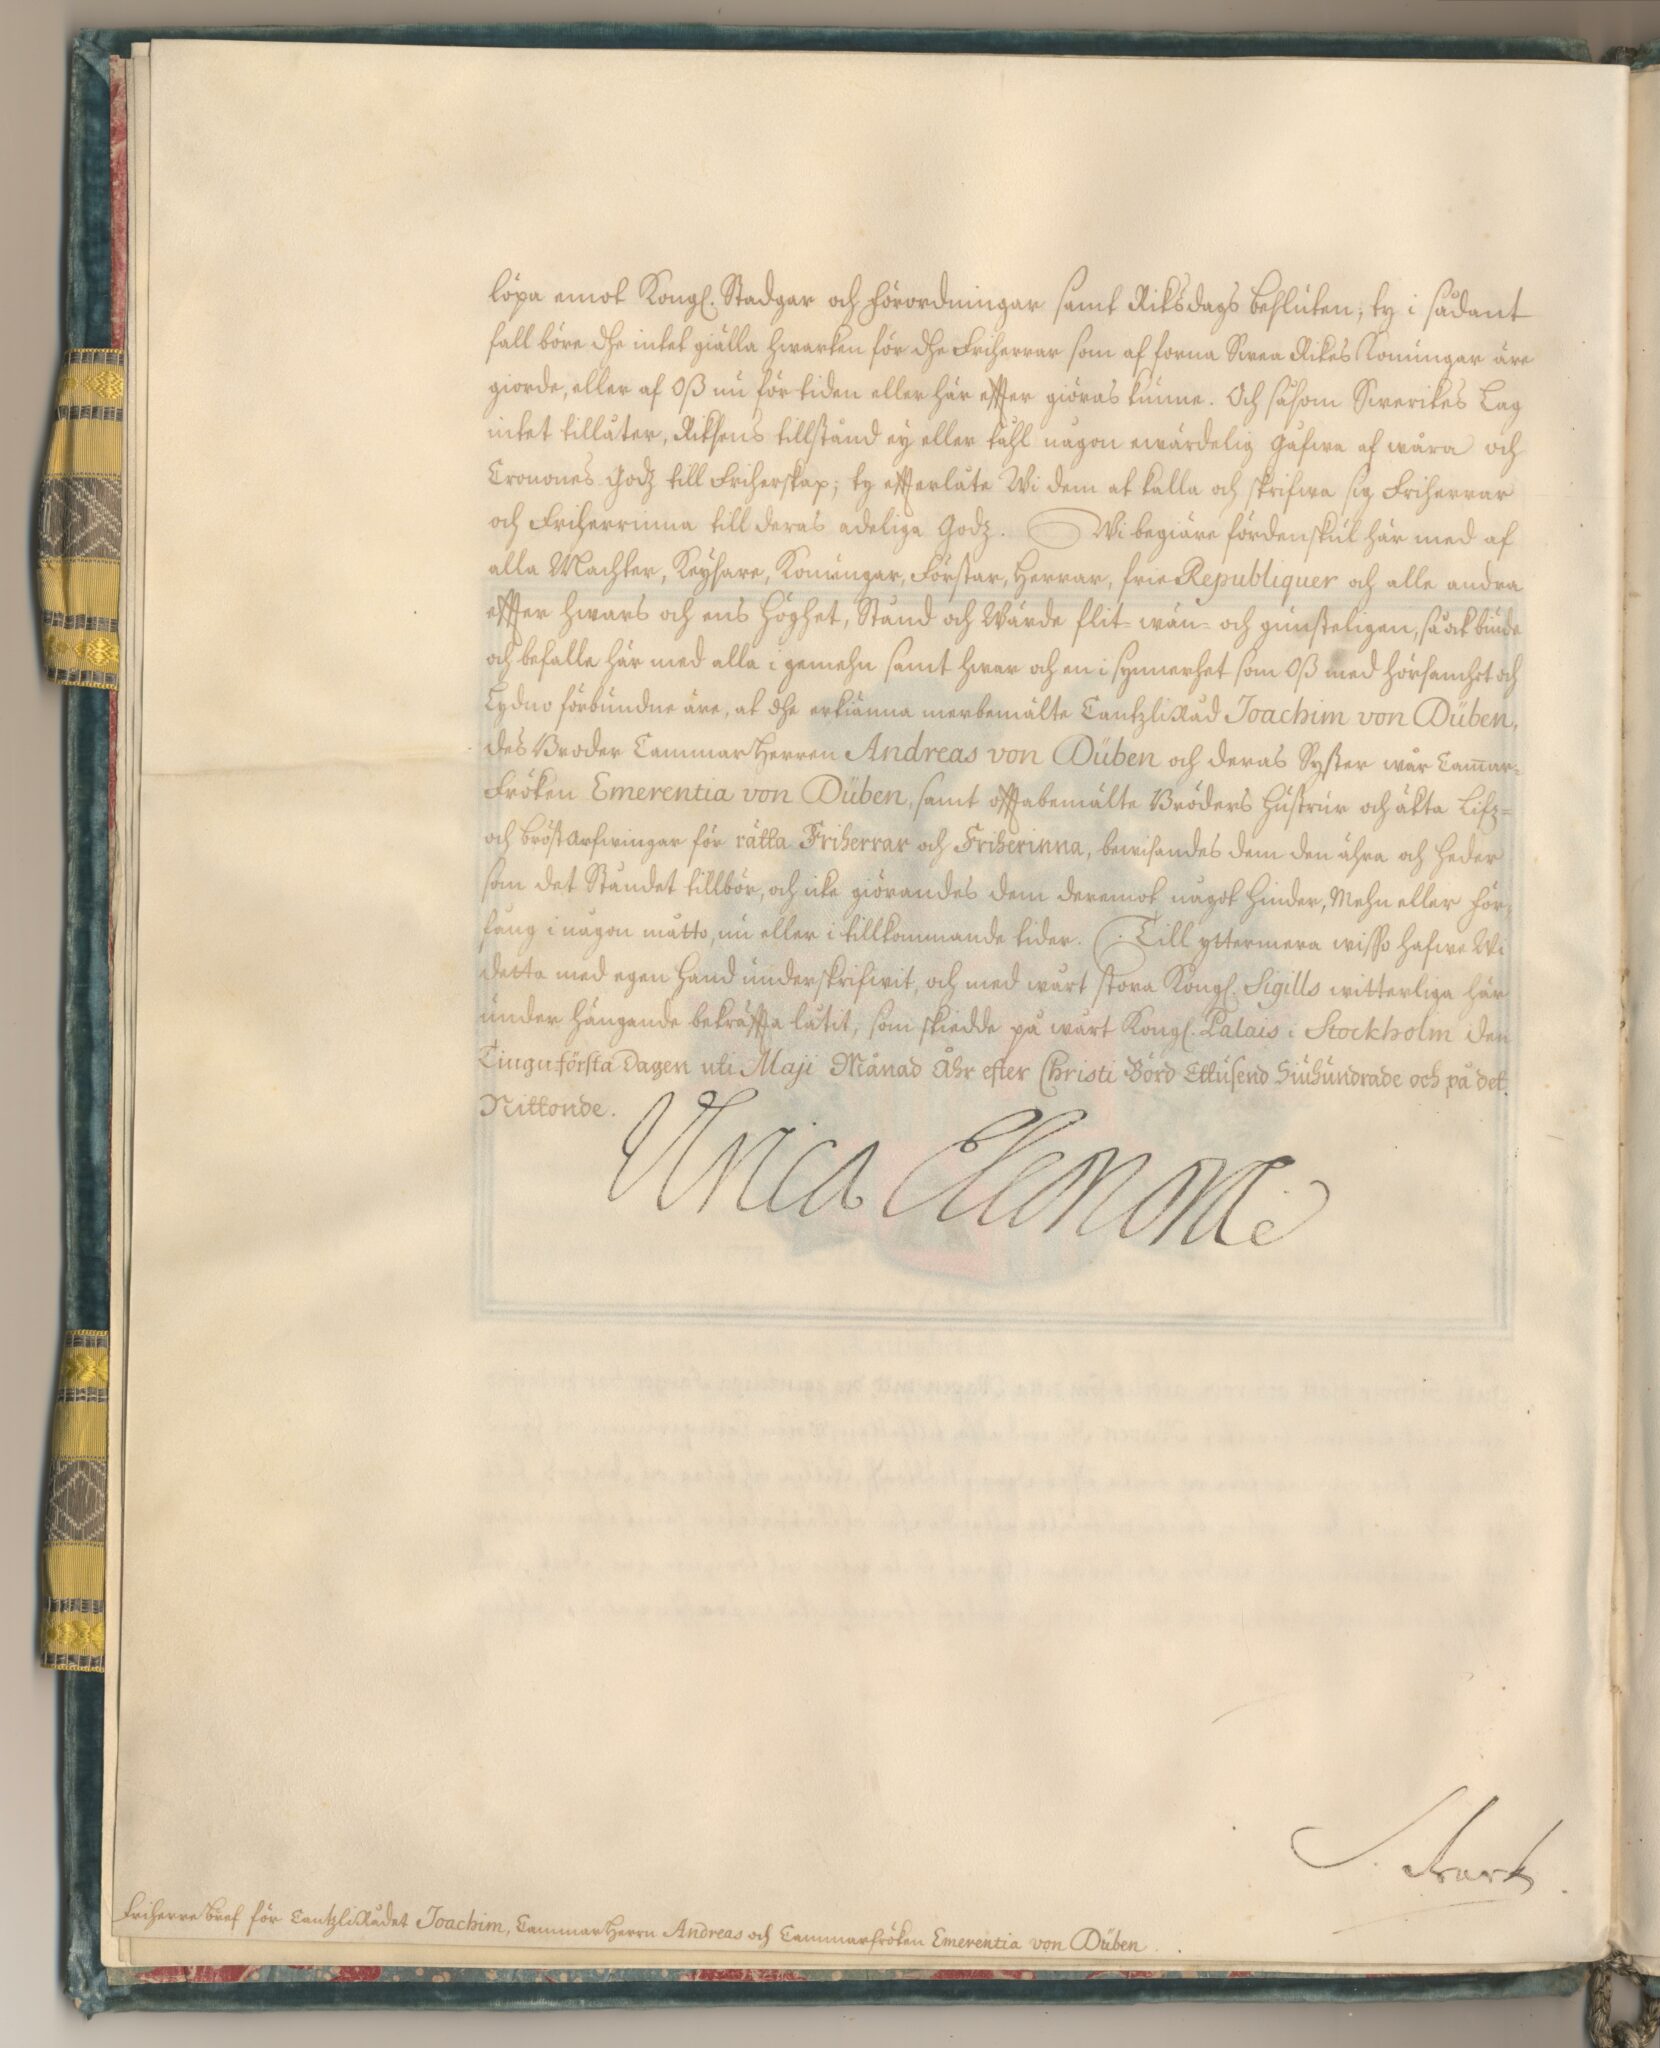 löpa emot Kongl. Stadgar och förordningar samt Riksdags besluten; ty i sådant
fall böre dhe intet giälla hwarken för dhe Friherrar som af forna Swea Rikes Konungar äre
giorde, eller af Oß nu för tiden eller här effter giöras kunne. Och såsom Swerikes Lag
intet tillåter, Riksens tillstånd ey eller tåhl någon ewärdelig gåfwa af wåra och
Cronones Godz till Friherskap; ty effterlåte Wi dem at kalla och skrifwa sig Friherrar
och Friherrinna till deras adeliga Godz. Wi begiäre fördenskul här med af
alla Machter, Keysare, Konungar, Förstar, Herrar, frie Republiquer och alle andra
effter hwars och ens Höghet, Stånd och Wärde flit= wän= och gunsteligen, så ock biude
och befalle här med alla i gemehn samt hwar och en i synnerhet som Oß med hörsamhet och
Lydno förbundne äre, at dhe erkiänna merbemälte CantzliRåd Joachim von Düben,
des Broder CammarHerren Andreas von Düben och deras Syster wår Cam̄ar=
Fröken Emerentia von Düben, samt offtabemälte Bröders Hustrur och äkta Lifz=
och bröst arfwingar för rätta Friherrar och Friherinna, bewisandes dem den ähra och heder
som det Ståndet tillbör, och icke giörandes dem deremot något hinder, Mehn eller för,
fång i någon måtto, nu eller i tillkommande tider. Till yttermera wisso hafwe Wi
detta med egen hand underskrifwit, och med wårt stora Kongl. Sigills witterliga här
under hängande bekräffta låtit, som skiedde på wårt Kongl. Palais i Stockholm den
Tiuguförsta Dagen uti Maji Månad Åhr efter Christi Börd Ettusend Siuhundrade och på det
Nittonde.
Ulrica Eleonora
Friherre Bref för CantzliRådet Joachim, CammarHerrn Andreas och Cammarfröken Emerentia von Düben.